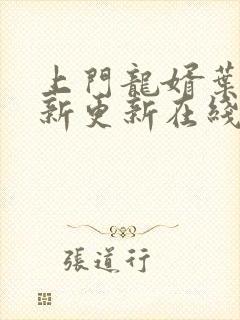 上門龍婿葉
新更新在綫
張道行